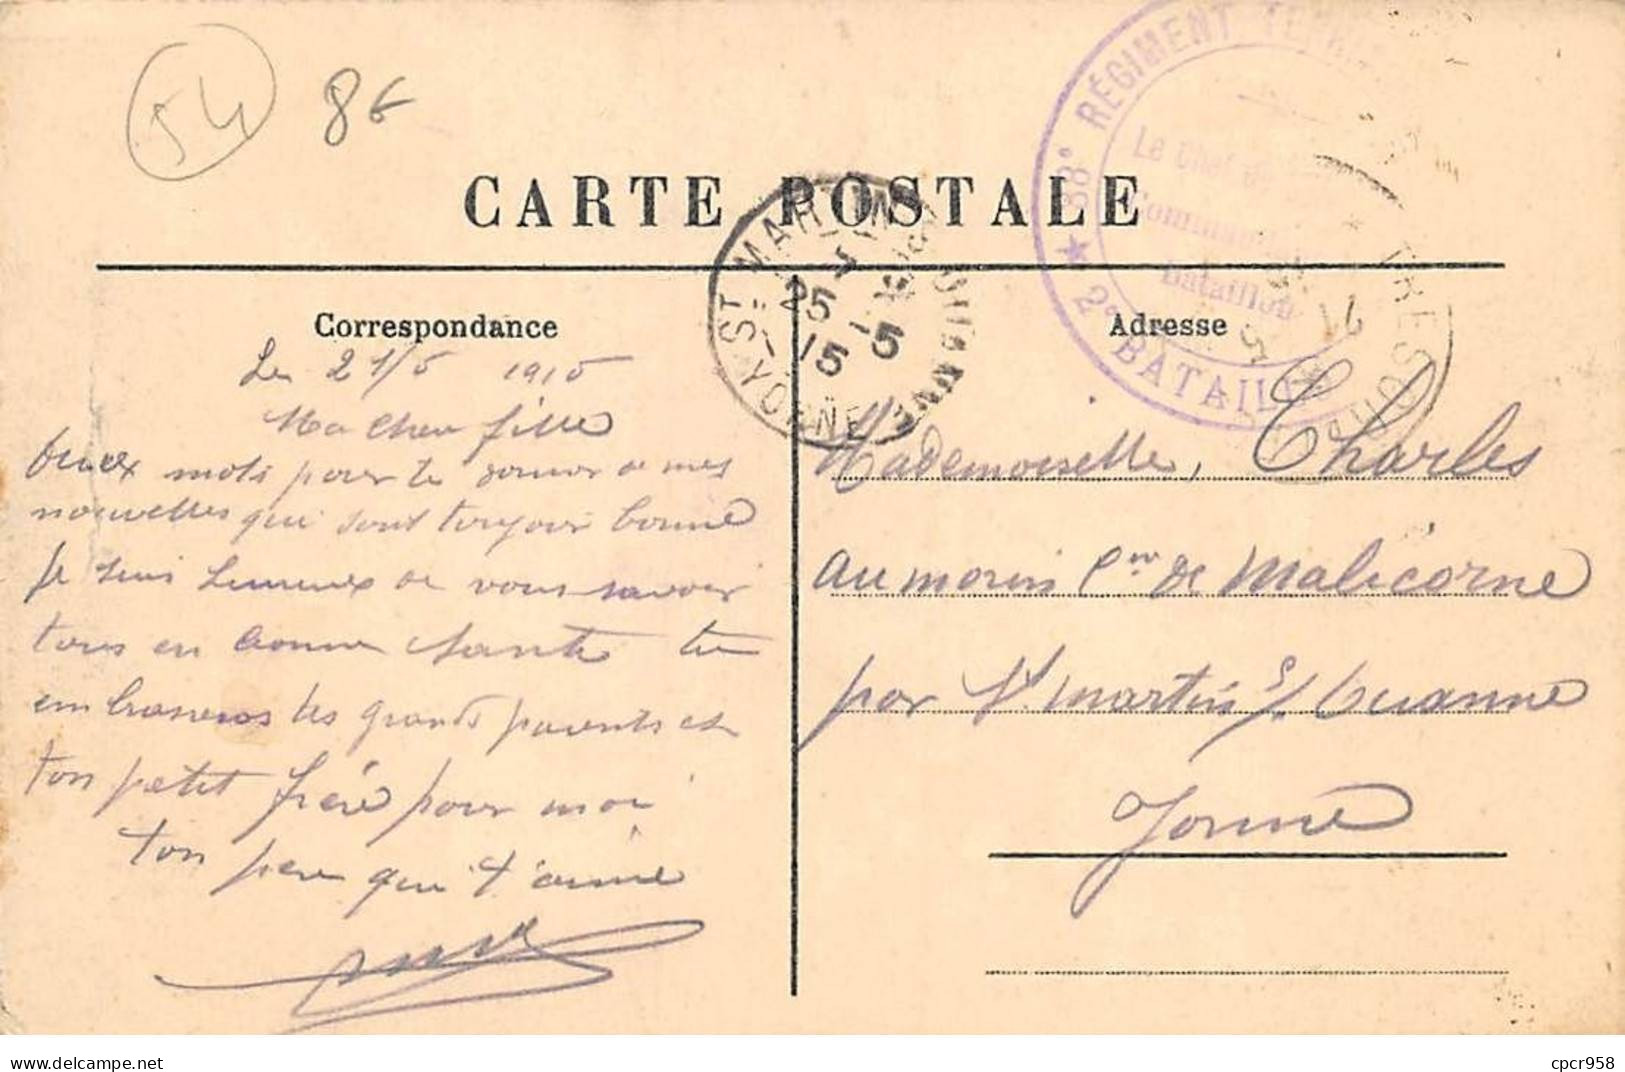 54 8€
CARTE POSTALE
88e RÉGIMENT
Le Chef de
Commandant
Bataillon
★ 2e BATAILL
TRESOR
21
5
15
ST MARTIN
25 - 5
15 5
YONNE
Correspondance
Adresse
Le 21/5 1915
Ma Cher fille
deux mots pour te donner de mes
nouvelles qui sont toujour bonne
Je suis hureux de vous savoir
tous en bonne santé tu
embrasseras tes grands parents et
ton petit frère pour moi
ton père qui t'aime
Mademoiselle, Charles
au morin Cne de Malicorne
par St. Martin s/ Ouanne
Yonne
cpcr958